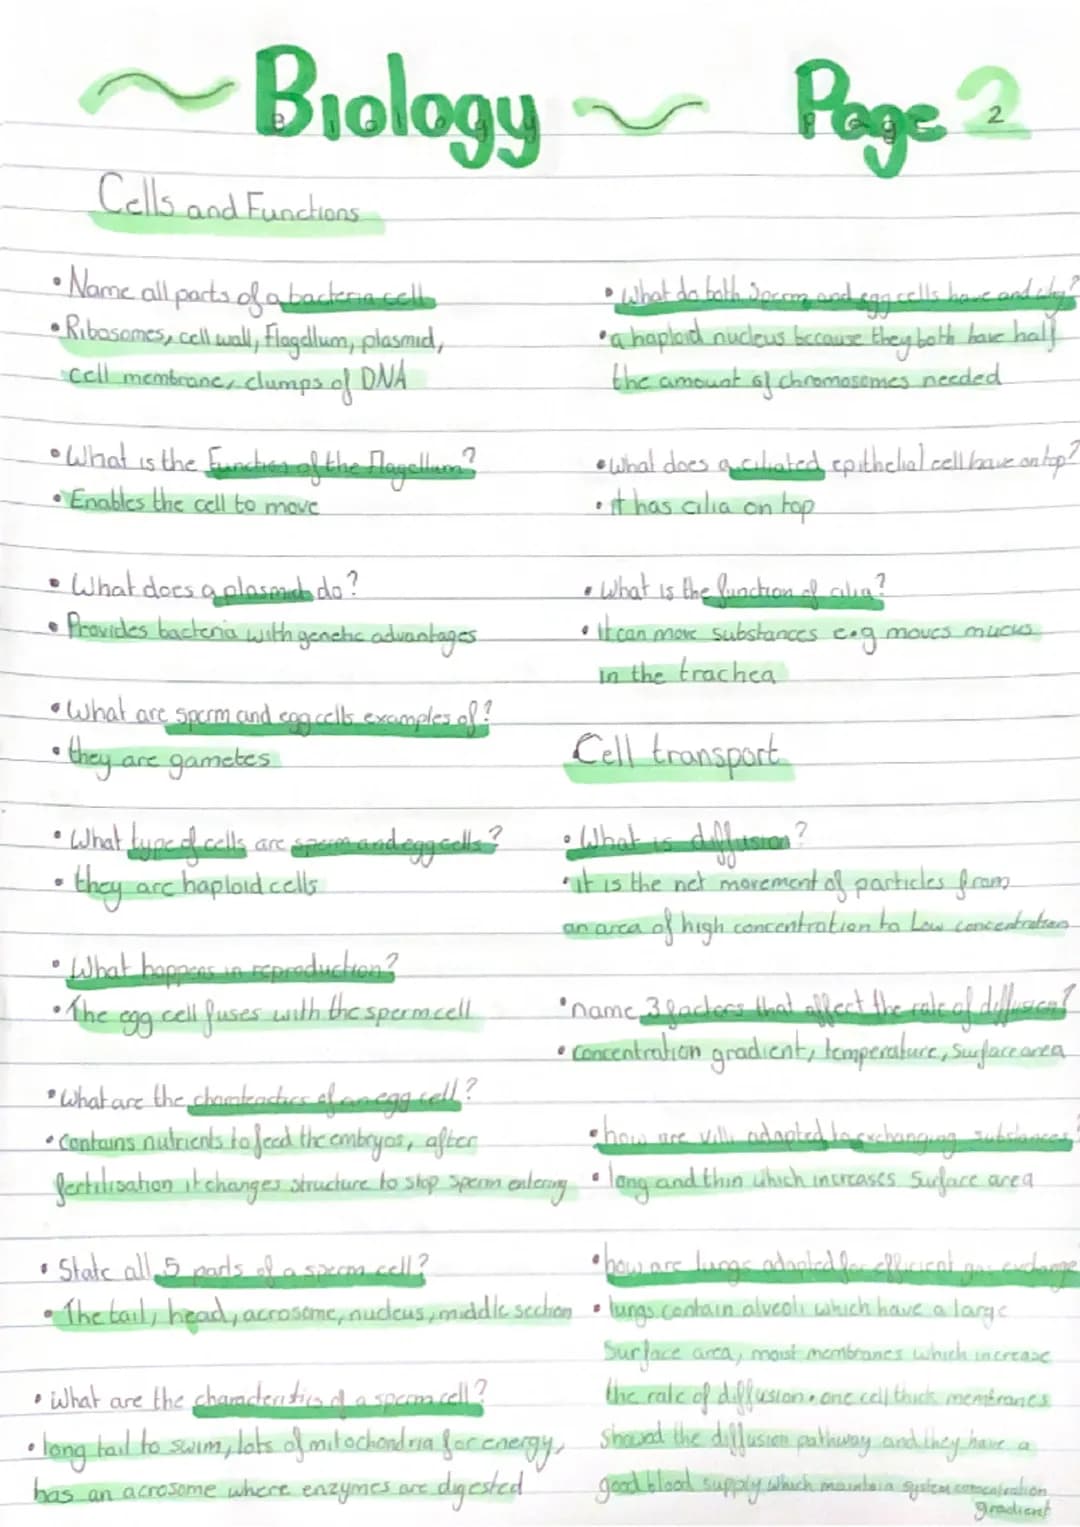 ~ Biology ~ Page 2
Cells and Functions
• Name all parts of a bacteria cell
• Ribosomes, cell wall, Flagellum, plasmid,
cell membrane, clumps of DNA
• What is the Function of the Flagellum?
• Enables the cell to move
• What does a plasmid do?
• Provides bacteria with genetic advantages
• What are sperm and egg cells examples of?
• they are gametes
• What type of cells are sperm and egg cells?
• they are haploid cells
• What happens in reproduction?
• The egg cell fuses with the sperm cell
• What are the characteristics of an egg cell?
• Contains nutrients to feed the embryos, after
fertilisation it changes structure to stop sperm entering
• State all 5 parts of a sperm cell?
• The tail, head, acrosome, nucleus, middle section
• What are the characteristics of a sperm cell?
• long tail to swim, lots of mitochondria for energy,
has an acrosome where enzymes are digested
• What do both Sperm and egg cells have and why?
• a haploid nucleus because they both have half
the amount of chromosomes needed
• What does a ciliated epithelial cell have on top?
• it has cilia on top
• What is the function of cilia?
• It can move substances e.g moves mucus
in the trachea
Cell transport
• What is diffusion?
• it is the net movement of particles from
an area of high concentration to Low concentration
• name 3 factors that affect the rate of diffusion?
• Concentration gradient, temperature, Surface area
• how are villi adapted to exchanging substances?
• long and thin which increases Surface area
• how are lungs adapted for efficient gas exchange
• lungs contain alveoli which have a large
Surface area, moist membranes which increase
the rate of diffusion. one cell thick membranes
the diffusion pathway and they have a
good blood supply which maintain concentration
gradient